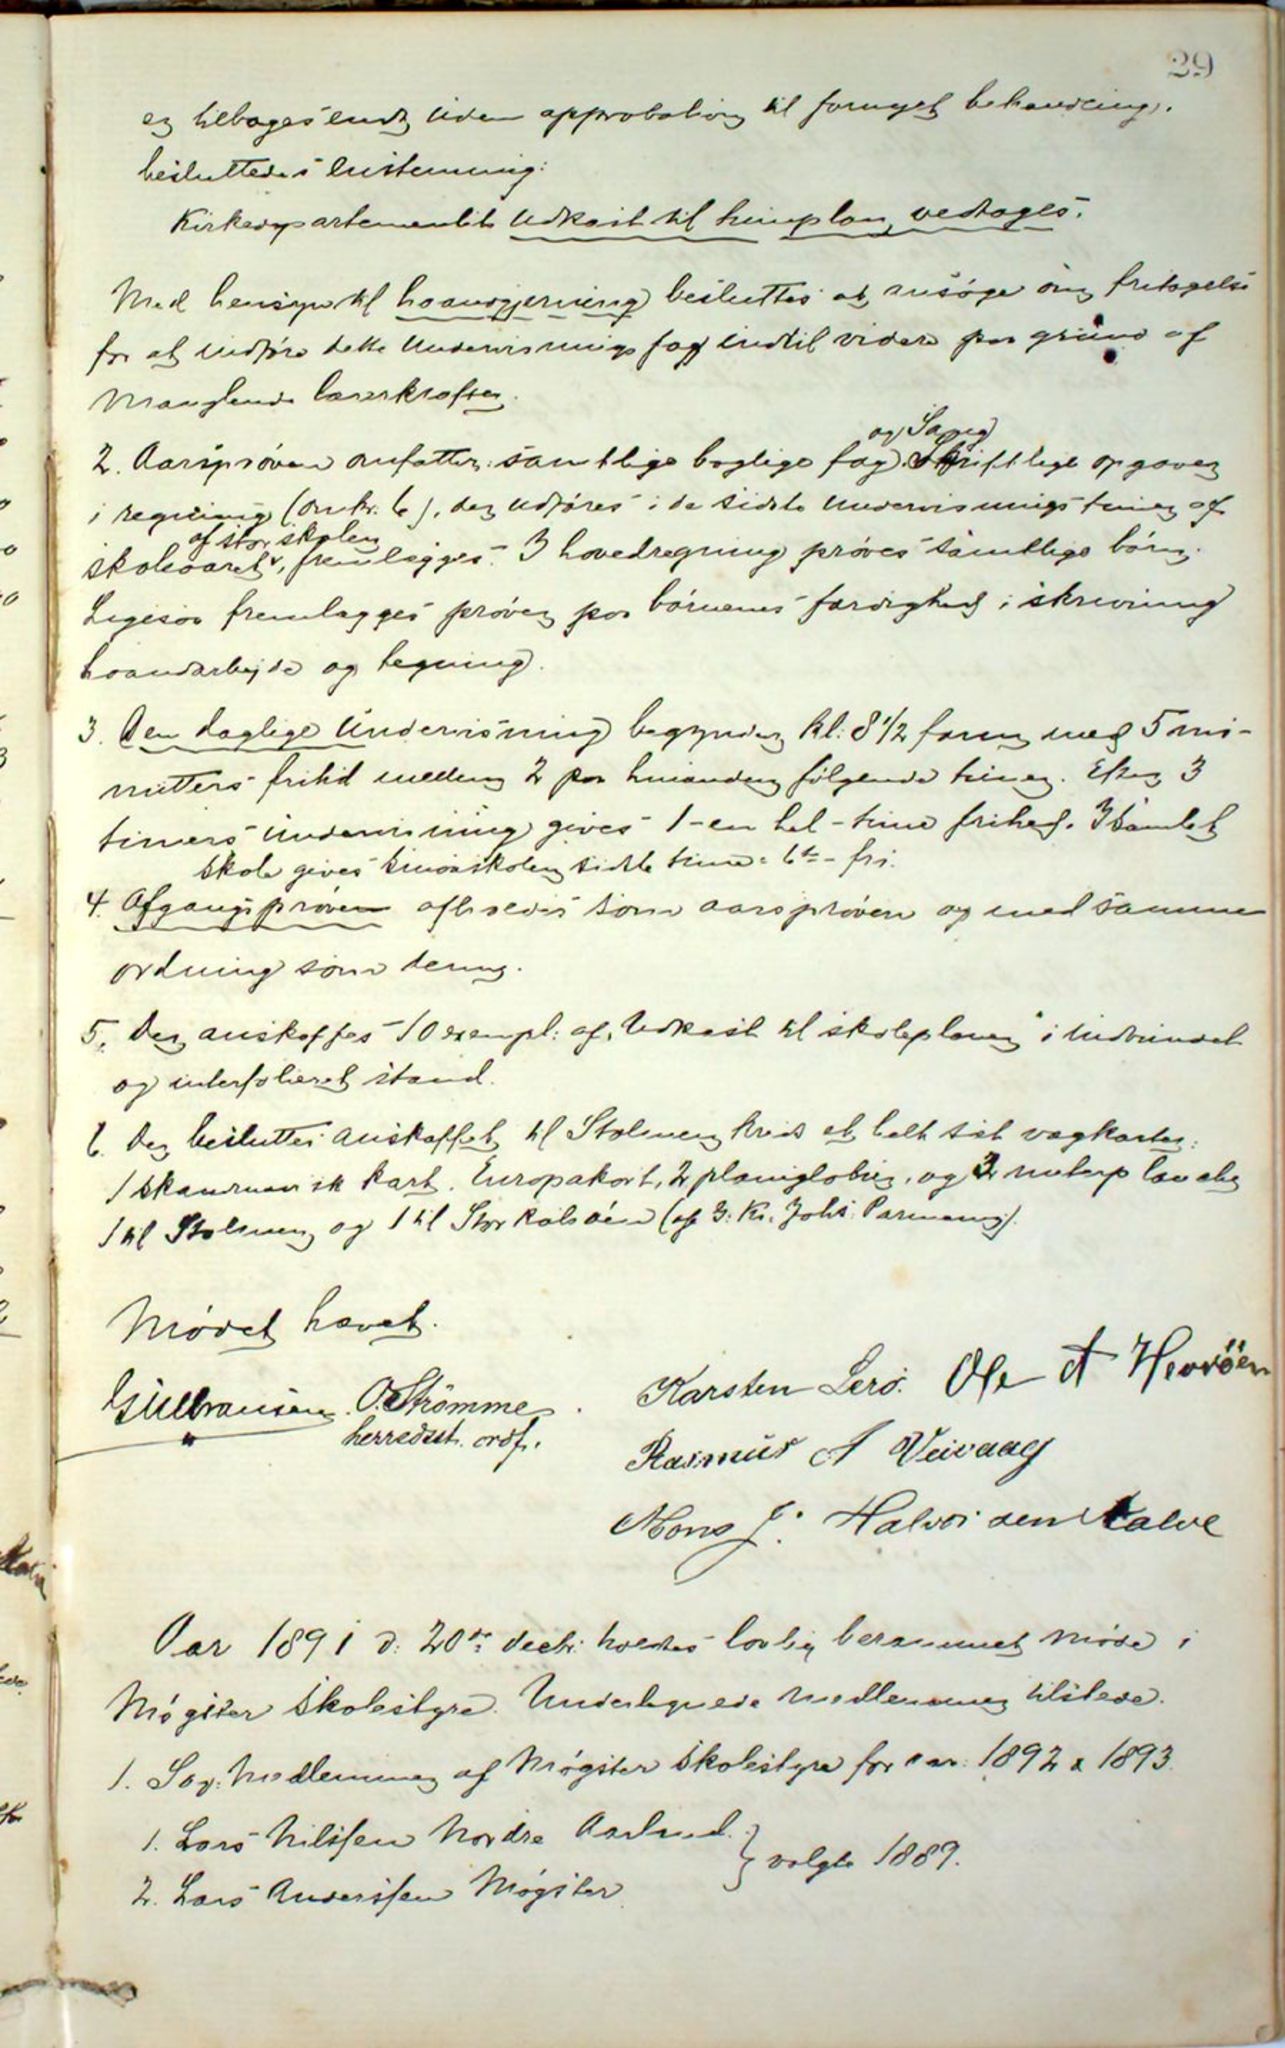 29
er tilbagesendt uden approbation til fornyet behandling,
besluttedes enstemmig:
Kirkedepartementets Udkast til timeplan vedtages.
Med hensyn til haandgjerning besluttes at ansøge om fritagelse
for at indføre dette Undervisningsfag indtil videre paa grund af
Manglende lærerkræfter.
og Sang
2. Aarsprøven omfatter samtlige boglige fag. Skriftlige opgaver
i regning (omkr. 6), der udføres i de sidste Undervisningstimer af
af storskolen
skoleaaret, fremlægges. I hovedregning prøves samtlige børn.
Ligesaa fremlægges prøver paa børnenes færdighed i skrivning
haandarbejde og tegning.
3. Den daglige Undervisning begynder kl: 8 1/2 form med 5 mi-
nutters fritid mellem 2 paa hinanden følgende timer. Efter 3
timers Undervisning gives 1-en hel-time frihed. I samlet
skole gives smaaskolen sidste time: 6te - fri.
4. Afgangsprøven afholdes som aarsprøven og med samme
ordning som denne.
5. Der anskaffes 10 exempl: af "Udkast til skoleplaner" i indbundet
og interfolieret stand.
6. Der besluttes anskaffet til Stolmen kreds et helt sæt vægkarter:
1 skandinavisk kart. Europakart, 2 planiglober, og 2
1 til Stolmen og 1 til Storkalsøen (af J. Kr. Johs. Parmann).
Mødet hævet.
Gulbransen. O. Strømme
herredsst. ordf.
Karsten Lerø. Ole A Hevrøen
Rasmus A Veivaag
Mons J. Halvorsen Kalve
Aar 1891 d: 20de decbr: holdtes lovlig berammet Møde i
Møgster Skolestyre. Undertegnede Medlemmer tilstede.
1. Som Medlemmer af Møgster Skolestyre for aar: 1892 & 1893.
1. Lars Nilssen Nordre Aarland.
2. Lars Anderssen Møgster
} valgte 1889.